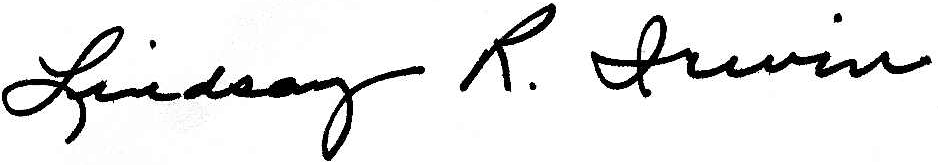 Lindsay R. Irwin